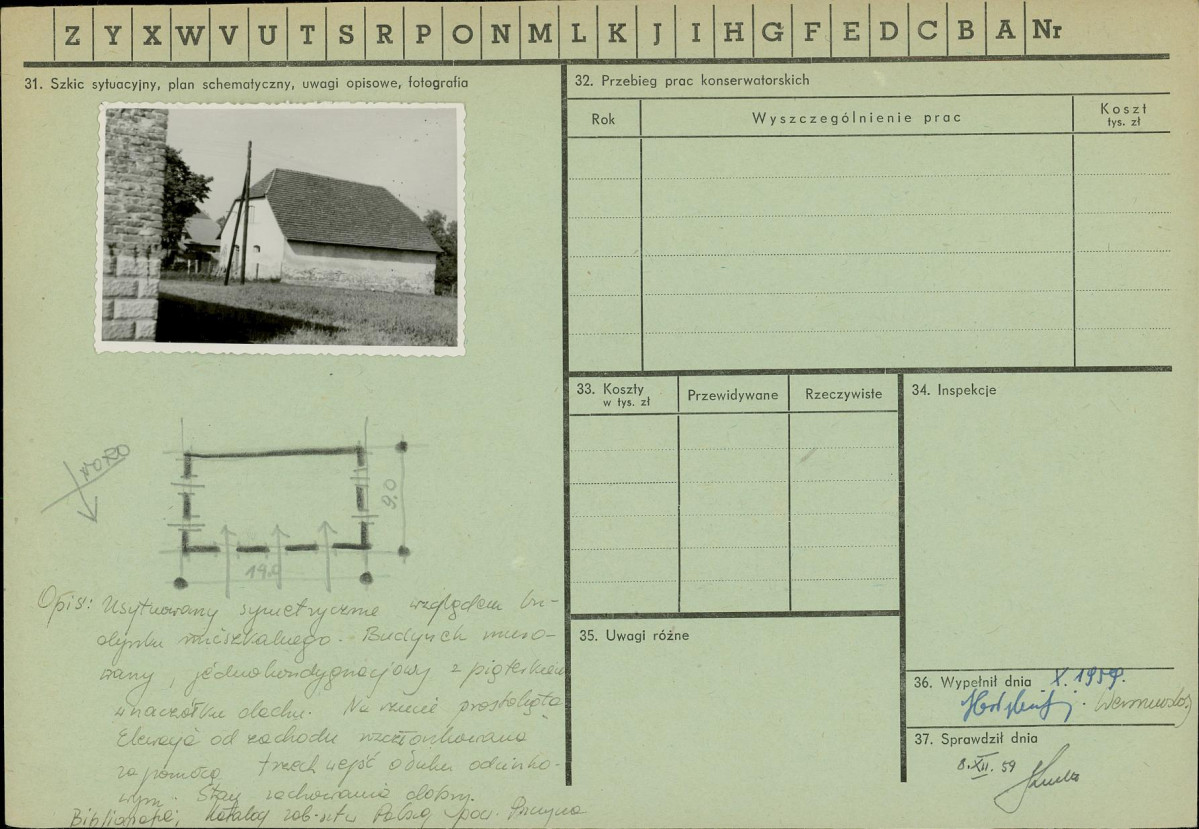 Z Y X W V U T S R P O N M L K J I H G F E D C B A Nr
31. Szkic sytuacyjny, plan schematyczny, uwagi opisowe, fotografia
9.0
Opis: Usytuowany symetrycznie względem bu-
dynku mieszkalnego. Budynek muro-
wany, jednokondygnacjowy z pięterkiem
w naczółku dachu. Na rzucie prostokąta
Elewacja od zachodu rozczłonkowana
za pomocą trzech wejść o łuku odcinko-
wym. Stan zachowania dobry.
Bibliografia; Katalog zab. szt. w Polsce pow. Pszczyna
32. Przebieg prac konserwatorskich
Rok
Wyszczególnienie prac
Koszt
tys. zł
33. Koszty
w tys. zł
Przewidywane
Rzeczywiste
34. Inspekcje
35. Uwagi różne
36. Wypełnił dnia X. 1959.
37. Sprawdził dnia
8.XII. 59